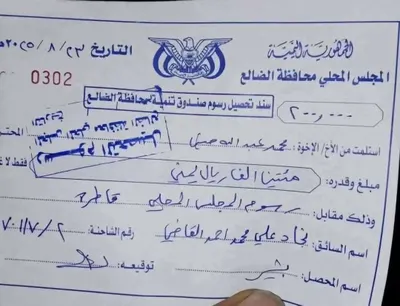 الجمهورية اليمنية
المجلس المحلي محافظة الضالع
التاريخ ٢٣ / ٨ / ٢٠٢٥م
0302
سند تحصيل رسوم صندوق تنمية محافظة الضالع
٢٠٠,٠٠٠
استلمت من الأخ/ الإخوة: محمد عبدالله المحترم
رسوم التحصيل
مبلغ وقدره: مئتين الف ريال يمني فقط لا غير
وذلك مقابل: رسوم المجلس المحلي قاطرة
اسم السائق: نجاد علي محمد احمد القاضي رقم الشاحنة:
اسم المحصل: توقيعه: